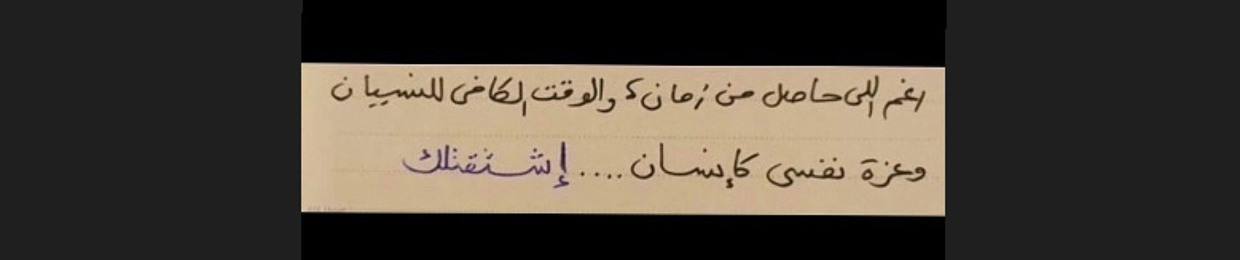 رغم اللى حاصل من زمان، والوقت الكافى للنسيان
وعزة نفسى كإنسان .... إشتقتلك